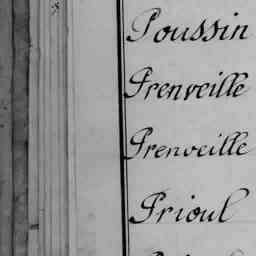 Poussin
Prenveille
Prenveille
Prioul